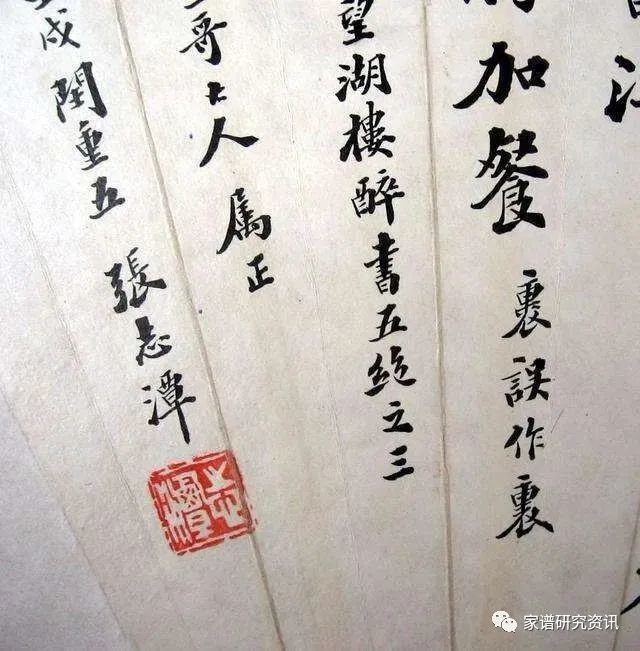 加餐 裹誤作裏
望湖樓醉書五絕之三
哥大人 屬正
戌閏重五 張志潭
志潭
家谱研究资讯